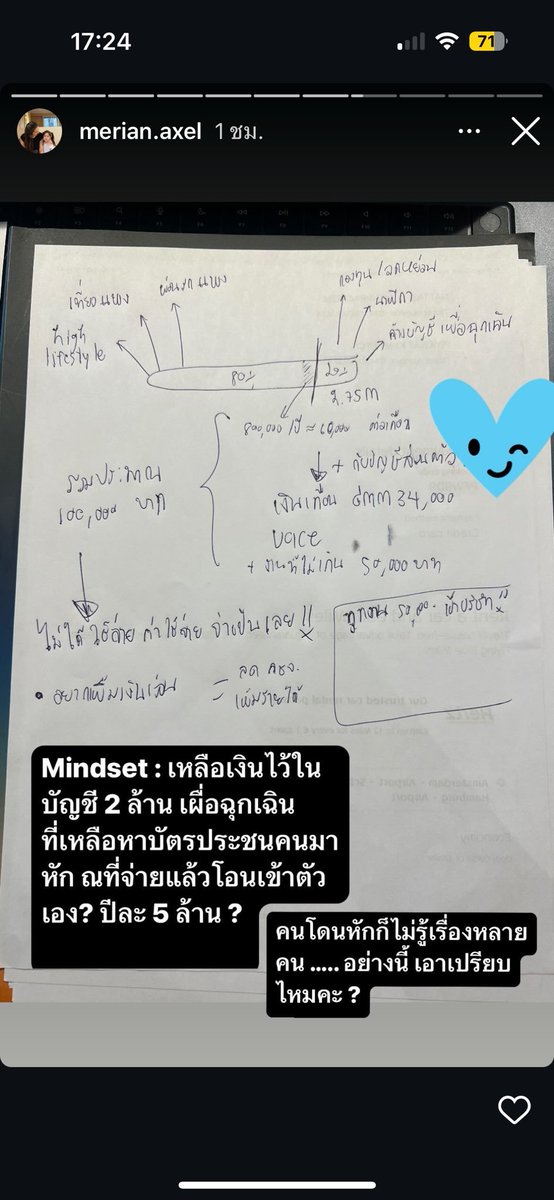 17:24
71
merian.axel 1 ชม.
เที่ยวแพง
ผ่อนรถแพง
กองทุน/ลดหย่อน
นาฬิกา
ค้างบัญชี เพื่อฉุกเฉิน
high
lifestyle
80%
20%
2.75 m
800,000/ปี ≈
ต่อเดือน
รวมประมาณ
100,000 บาท
เงินเดือน
34,000
+ งานที่ไม่เกิน 50,000 บาท
ไม่ได้ใช้จ่าย ค่าใช้จ่าย จำเป็นเลย !!
• อยากเพิ่มเงินเก็บ
= ลด คชจ.
เพิ่มรายได้
ทุกงาน
เข้าบริษัท
Mindset : เหลือเงินไว้ใน
บัญชี 2 ล้าน เผื่อฉุกเฉิน
ที่เหลือหาบัตรประชนคนมา
หัก ณที่จ่ายแล้วโอนเข้าตัว
เอง? ปีละ 5 ล้าน ?
คนโดนหักก็ไม่รู้เรื่องหลาย
คน ..... อย่างนี้ เอาเปรียบ
ไหมคะ ?